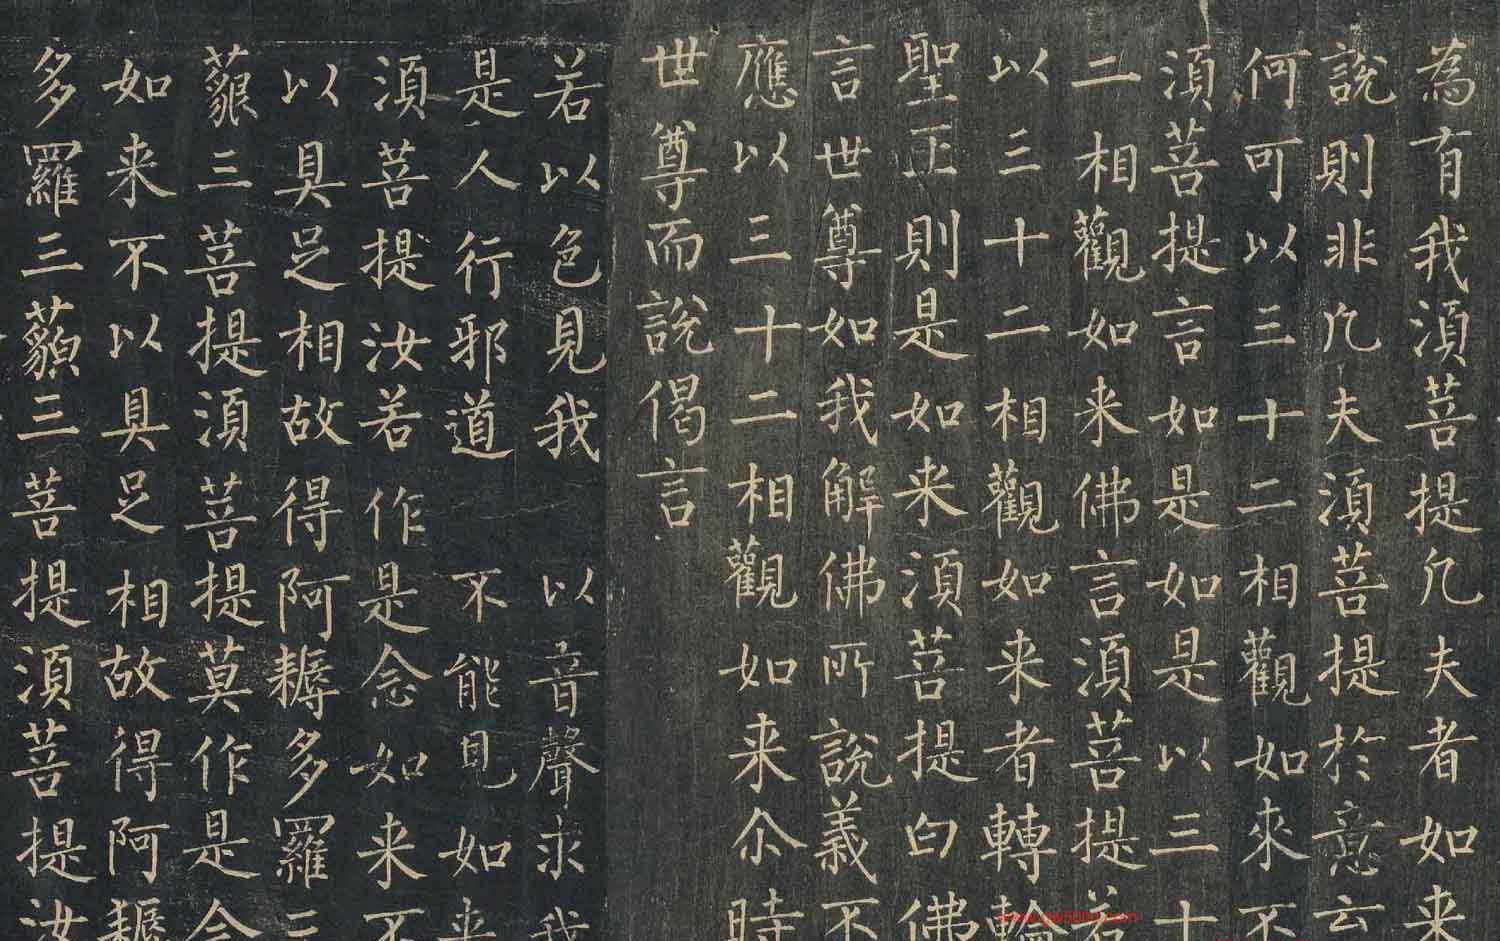 為有我須菩提凡夫者如来
說則非凡夫須菩提於意云
何可以三十二相觀如來不
須菩提言如是如是以三十
二相觀如来佛言須菩提若
以三十二相觀如来者轉輪
聖王則是如来須菩提白佛
言世尊如我解佛所說義不
應以三十二相觀如来尒時
世尊而說偈言
若以色見我 以音聲求我
是人行邪道 不能見如来
須菩提汝若作是念如来不
以具足相故得阿耨多羅三
藐三菩提須菩提莫作是念
如来不以具足相故得阿耨
多羅三藐三菩提須菩提汝